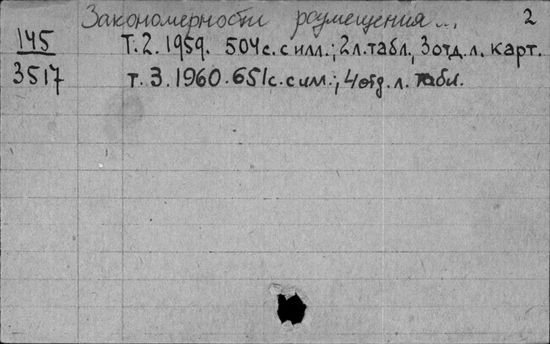 Закономерности размещения... 2
145 Т.2. 1959. 504с. с илл.; 2л. табл., 3 отд. л. карт.
3517 т. 3. 1960. 651с. с ил.; 4 отд. л. табл.